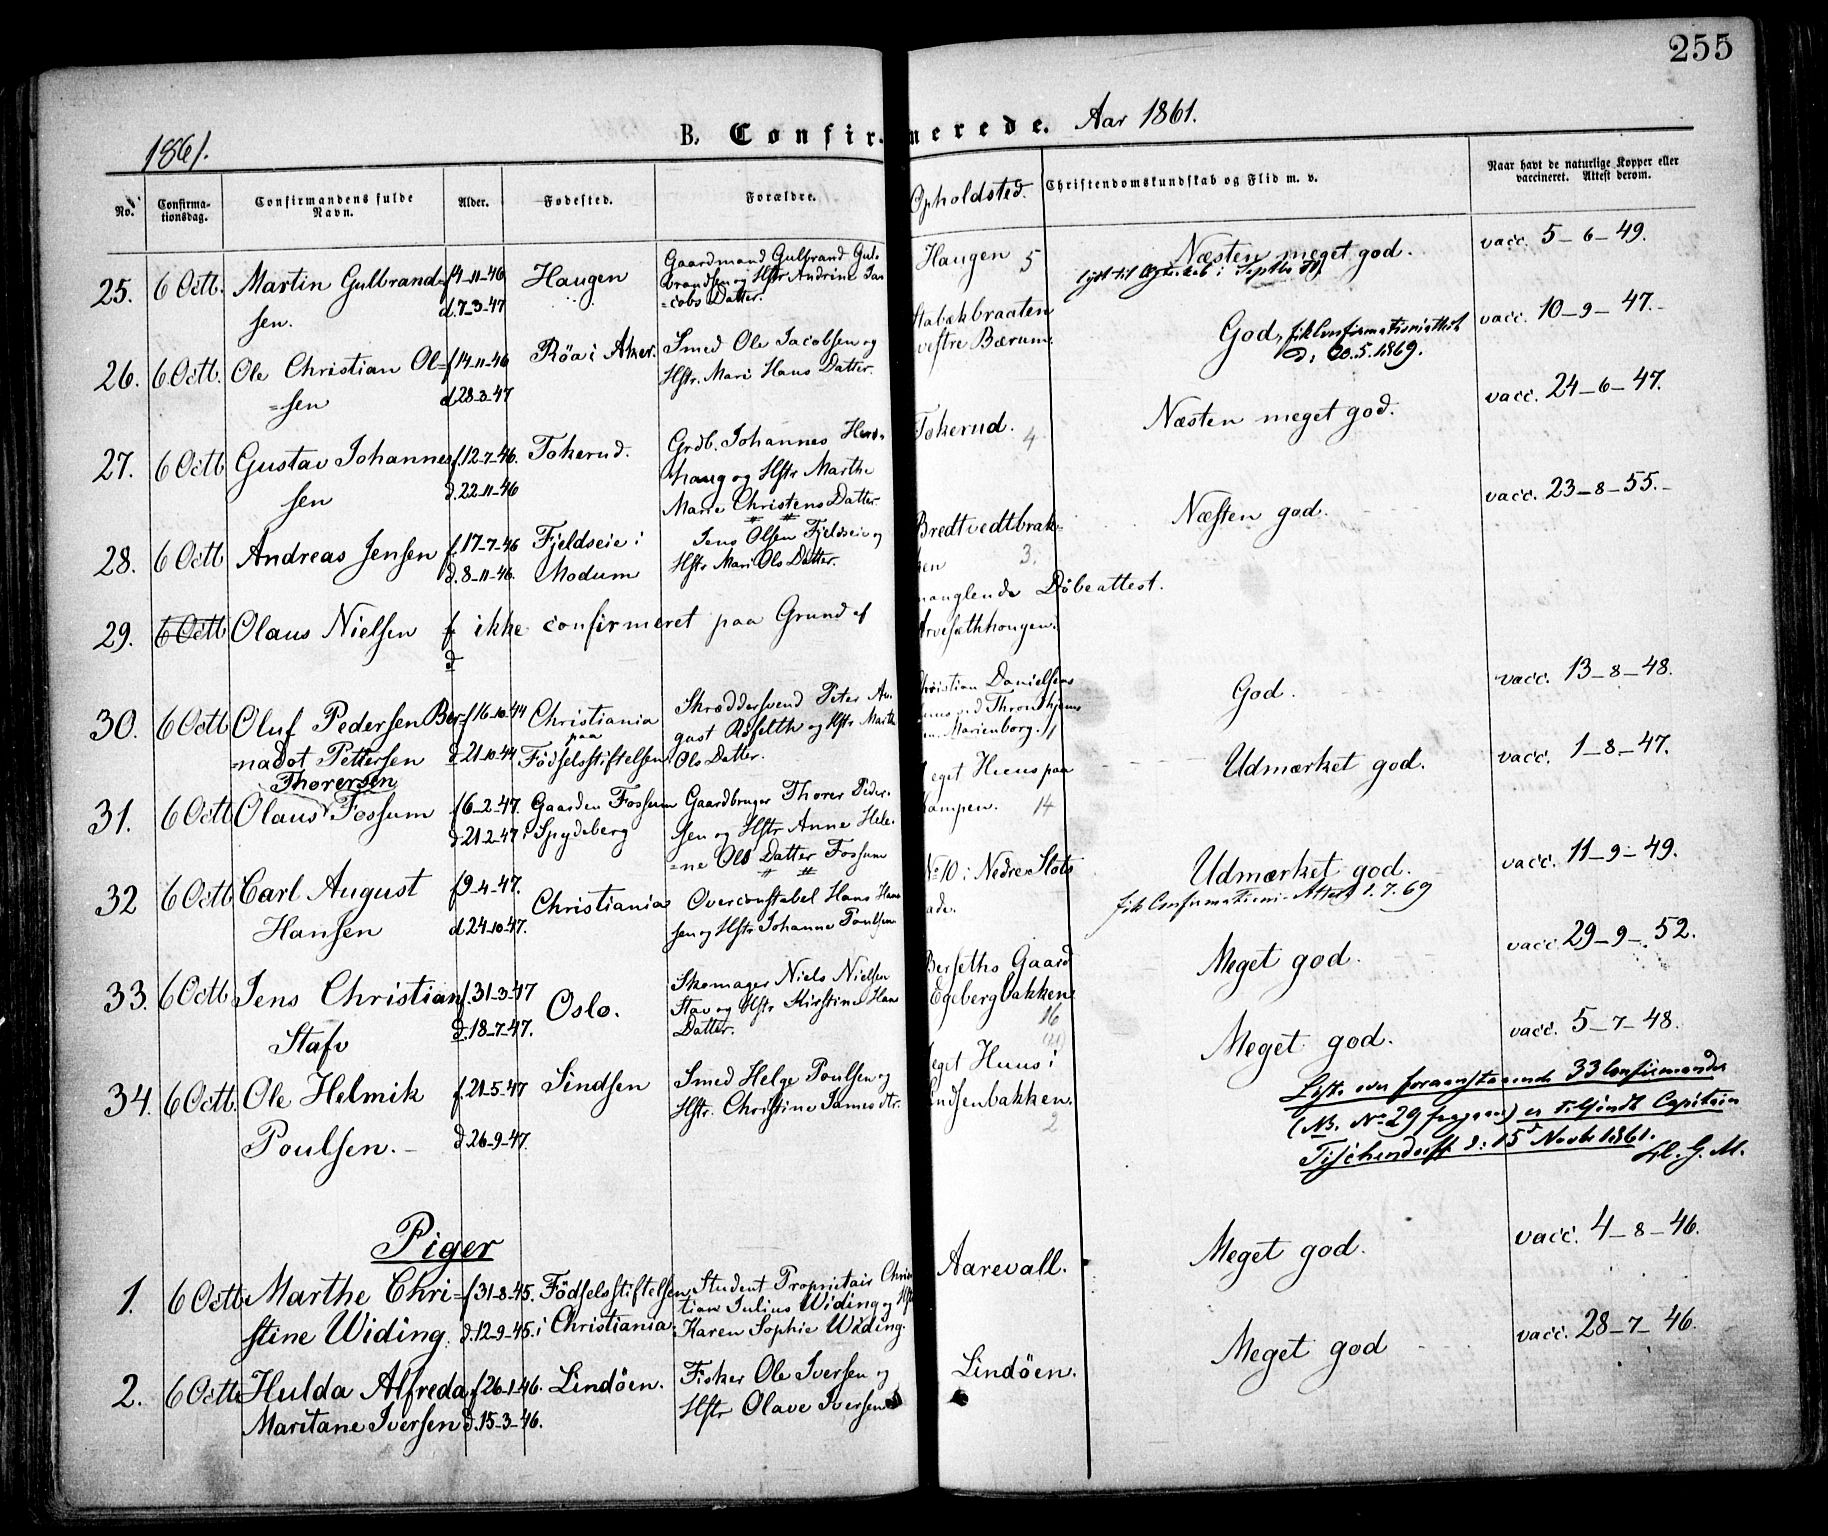 255
1861.
B. Confir- merede. Aar 1861.
No.
Confirma-
tionsdag.
Confirmandens fulde
Navn.
Alder.
Fødested.
Forældre.
Opholdsted.
Christendomskundskab og Flid m. v.
Naar havt de naturlige Kopper eller
vaccineret. Attest derom.
25. 6 Octb. Martin Gulbrand-
sen.
f 4-11-46
d. 7-3-47
Haugen
Gaardmand Gulbrand Gul-
brandsen og Hstr Andrine Ja-
=cobs Datter.
Haugen 5
Næsten meget god.
vacc. 5-6-49.
26. 6 Octb. Ole Christian Ol=
=sen
f 14-11-46
d 28-3-47
Röa i Aker.
Smed Ole Jacobsen og
Hstr. Mari Hans Datter.
Stabækbraaten
vestre Bærum.
God, fik Confirmationsattest
d. 20.5.1869.
vacc. 10-9-47.-
27. 6 Octb Gustav Johannes
sen
f. 12-7-46.
d. 22-11-46
Tokerud.
Grdb. Johannes
haug og Hstr Marthe
Marie Christens Datter.
Tokerud. 4
Næsten meget god.
vacc. 24-6-47.
28. 6 Octb Andreas Jensen
f. 17-7-46
d. 8-11-46.
Fjeldseie i
Modum
Jens Olsen Fjeldseie og
Hstr Mari Ols Datter.
Bredtvedtbrak-
ken 3.
Næsten god.
vacc. 23-8-55.-
29. 6 Octb Olaus Nielsen f ikke confirmeret paa Grund af
d
manglende Döbeattest.
30. 6 Octb Oluf Pedersen Ber=
=nadot Pettersen
f 16-10-44
d. 21-10-44
Christiania
paa
Födselsstiftelsen.
Skræddersvend Peter Au-
gust Rosfelth og Hstr Marthe
Ols Datter.
Christian Danielsens
Huus ved Thronhjems
Marienborg. 11
God.
vacc. 13-8-48.
31. 6 Octb Olaus Fossum
Thorersen
f 6-2-47.
d 21-2-47
Gaarden Fossum
i Spydeberg
Gaardbruger Thorer Peder-
sen og Hstr Anne Hele-
=ne Ols Datter Fossum
eget Huus paa
Kampen. 14
Udmærket god.
vacc. 1-8-47.
32 6 Octb Carl August
Hansen
f 9-4-47.
d 24-10-47.
Christiania
Overconstabel Hans Han-
sen og Hstr Johanne Poulsen
No 10 i Nedre Slots
gade.
Udmærket god.
fik Confirmations-Attest 1.7.69
vacc. 11-9-49.
33. 6 Octb Jens Christian
Stafv
f. 31-3-47
d. 18-7-47.
Oslo.
Skomager Niels Nielsen
Stav og Hstr Kirstine Hans
Datter.
Berseths Gaard
Egebergbakken
16
Meget god.
vacc 29-9-52.
34. 6 Octb. Ole Helmik
Poulsen.-
f. 21-5-47
d. 26-9-47.
Sindsen
Smed Helge Poulsen og
Hstr. Christine Jamesdtr.
eget Huus i
Sindsenbakken.
2
Meget god.
vacc. 5-7-48.
Liste over foranstaaende 33 Confirmander
(NB. No 29 fragaaer) er tilsendt Capitain
Tischendorff d: 15d Novbr 1861.
G. M.
Piger
1. 6 Octb Marthe Chri=
stine Widing.
f 31-8-45.
d. 12-9-45.
Födselsstiftelsen
i Christiania.
Student Proprietair Chris
tian Julius Widing og Hstr
Karen Sophie Widing.
Aarevall.
Meget god.
vacc. 4-8-46.
2. 6 Octb Hulda Alfreda
Maritane Iversen
f 26-1-46.
d. 15-3-46.
Lindöen.
Fisker Ole Iversen og
Hstr Olave Iversen
Lindöen.
Meget god
vacc. 28-7-46.